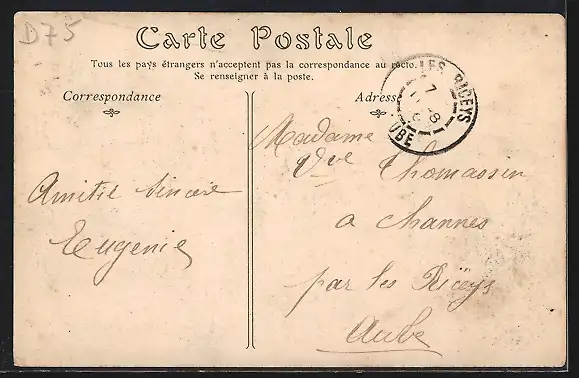 D75
Carte Postale
Tous les pays étrangers n'acceptent pas la correspondance au recto.
Se renseigner à la poste.
Correspondance
Adresse
LES RICEYS
AUBE
Amitié Sincère
Eugenie
Madame
Vve Thomassin
a Channes
par les Riceys
Aube